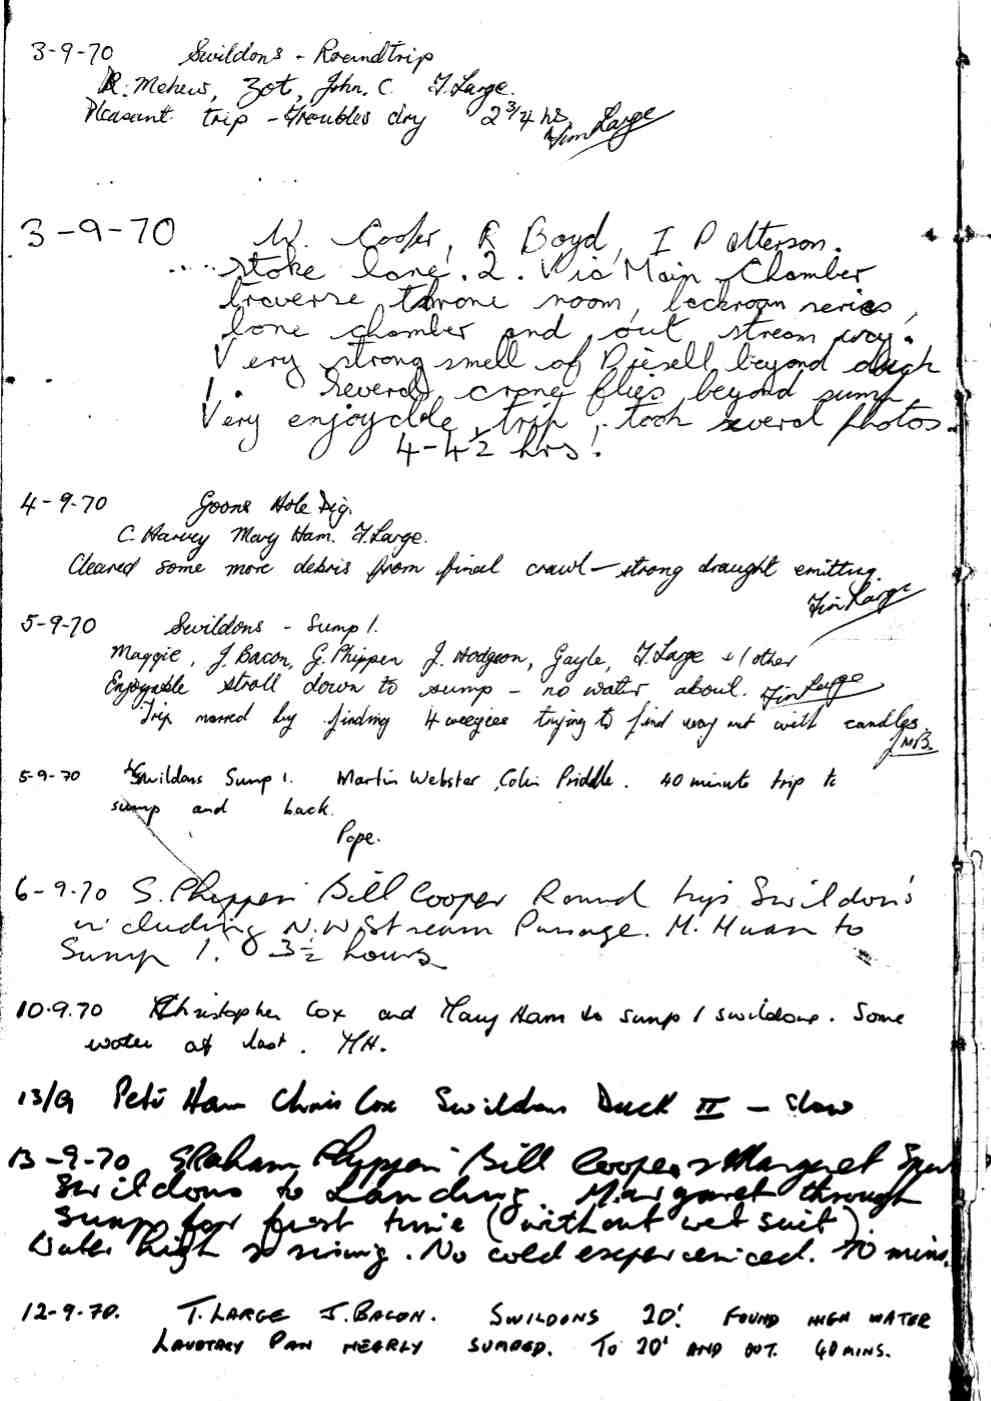 3-9-70 Swildons - Roundtrip
R. Mehew, Zot, John. C. T. Large.
Pleasant trip - troubles dry 2 3/4 hs
Tim Large
3-9-70 W. Cooper, R Boyd, I Patterson.
Stoke lane. 2. Via Main Chamber
traverse throne room, bedroom series,
bone chamber and out stream way.
Very strong smell of Diesell beyond duck
1. Several crane flies beyond sump
Very enjoyable trip, took several photos.
4-4½ hrs!
4-9-70 Goons Hole Dig.
C. Harvey Mary Ham. T. Large.
Cleared some more debris from final crawl - strong draught emitting.
Tim Large
5-9-70 Swildons - Sump 1.
Maggie, J. Bacon, G. Phippen J. Hodgson, Gayle, T. Large + 1 other
Enjoyable stroll down to sump - no water about. Tim Large
Trip marred by finding 4 weegies trying to find way out with candles.
JMB.
5-9-70 Swildons Sump 1. Martin Webster, Colin Priddle. 40 minute trip to
sump and back.
Pope.
6-9-70 S. Phippen Bill Cooper Round trip Swildon's
including N.W. Stream Passage. M. Huan to
Sump 1. 3½ hours
10.9.70 Christopher Cox and Mary Ham to sump 1 swildons. Some
water at last. MH.
13/9 Pete Ham Chris Cox Swildons Duck II - slow
13-9-70 Graham Phippen Bill Cooper & Margaret
Swildons to Landing. Margaret through
sump for first time (without wet suit).
Water high & rising. No cold experenced. 70 mins.
12-9-70. T. LARGE J. BACON. SWILDONS 20'. FOUND HIGH WATER
LAVOTARY PAN NEARLY SUMPED. TO 20' AND OUT. 40 MINS.